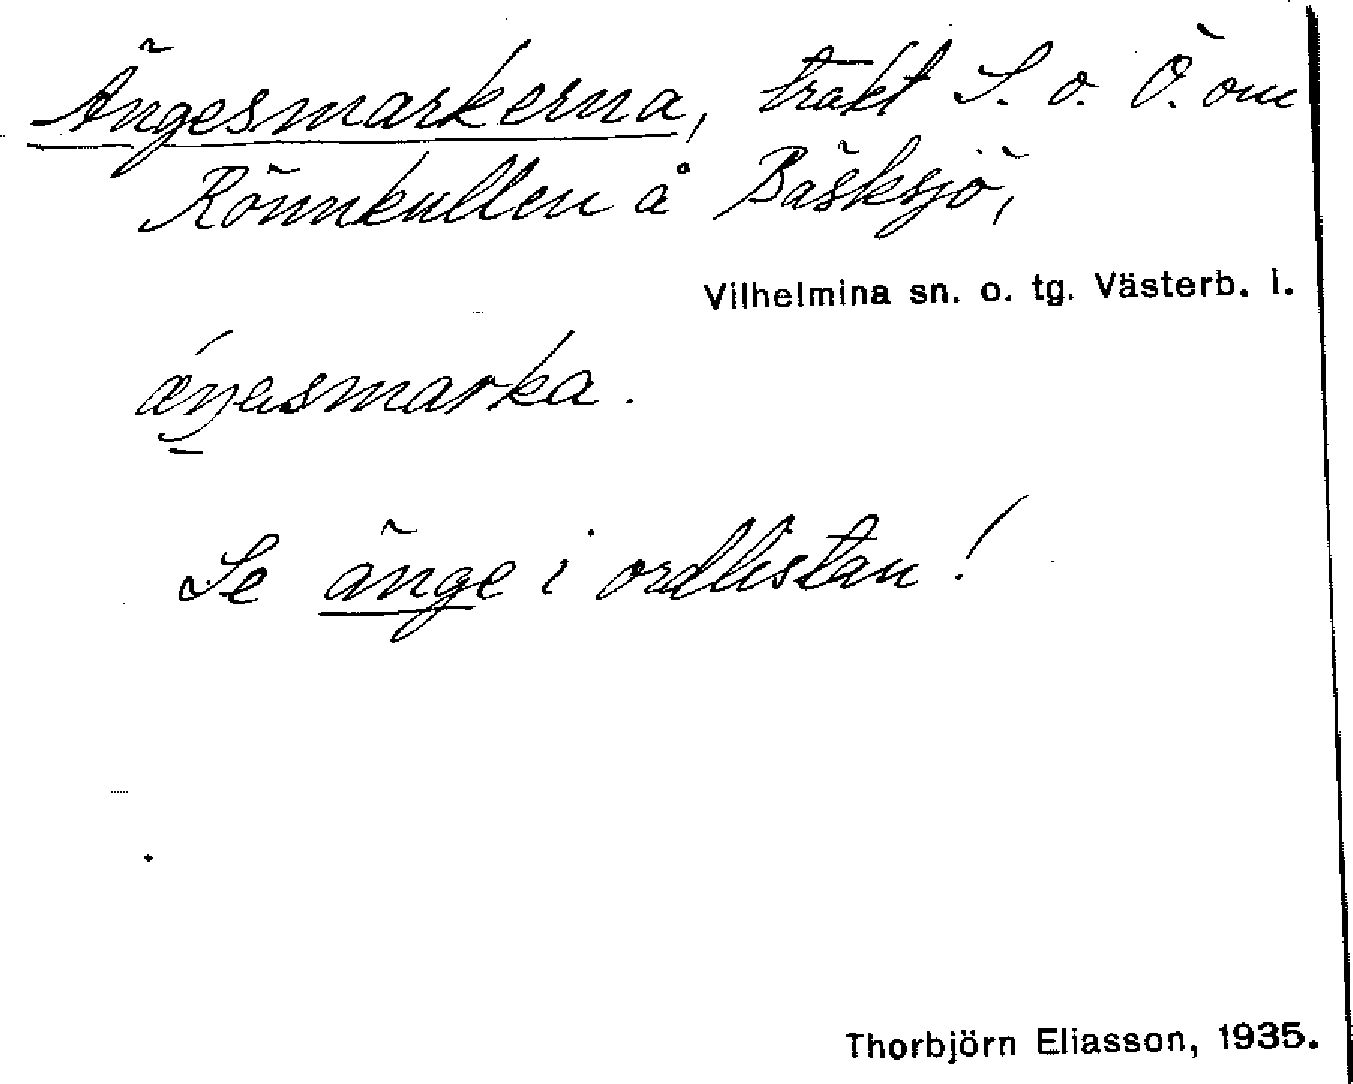 Ängesmarkerna, trakt S. o. Ö. om
Rönnkullen å Bäsksjö,
Vilhelmina sn. o. tg. Västerb. l.
ǽŋesmarka.
Se änge i ordlistan!
Thorbjörn Eliasson, 1935.